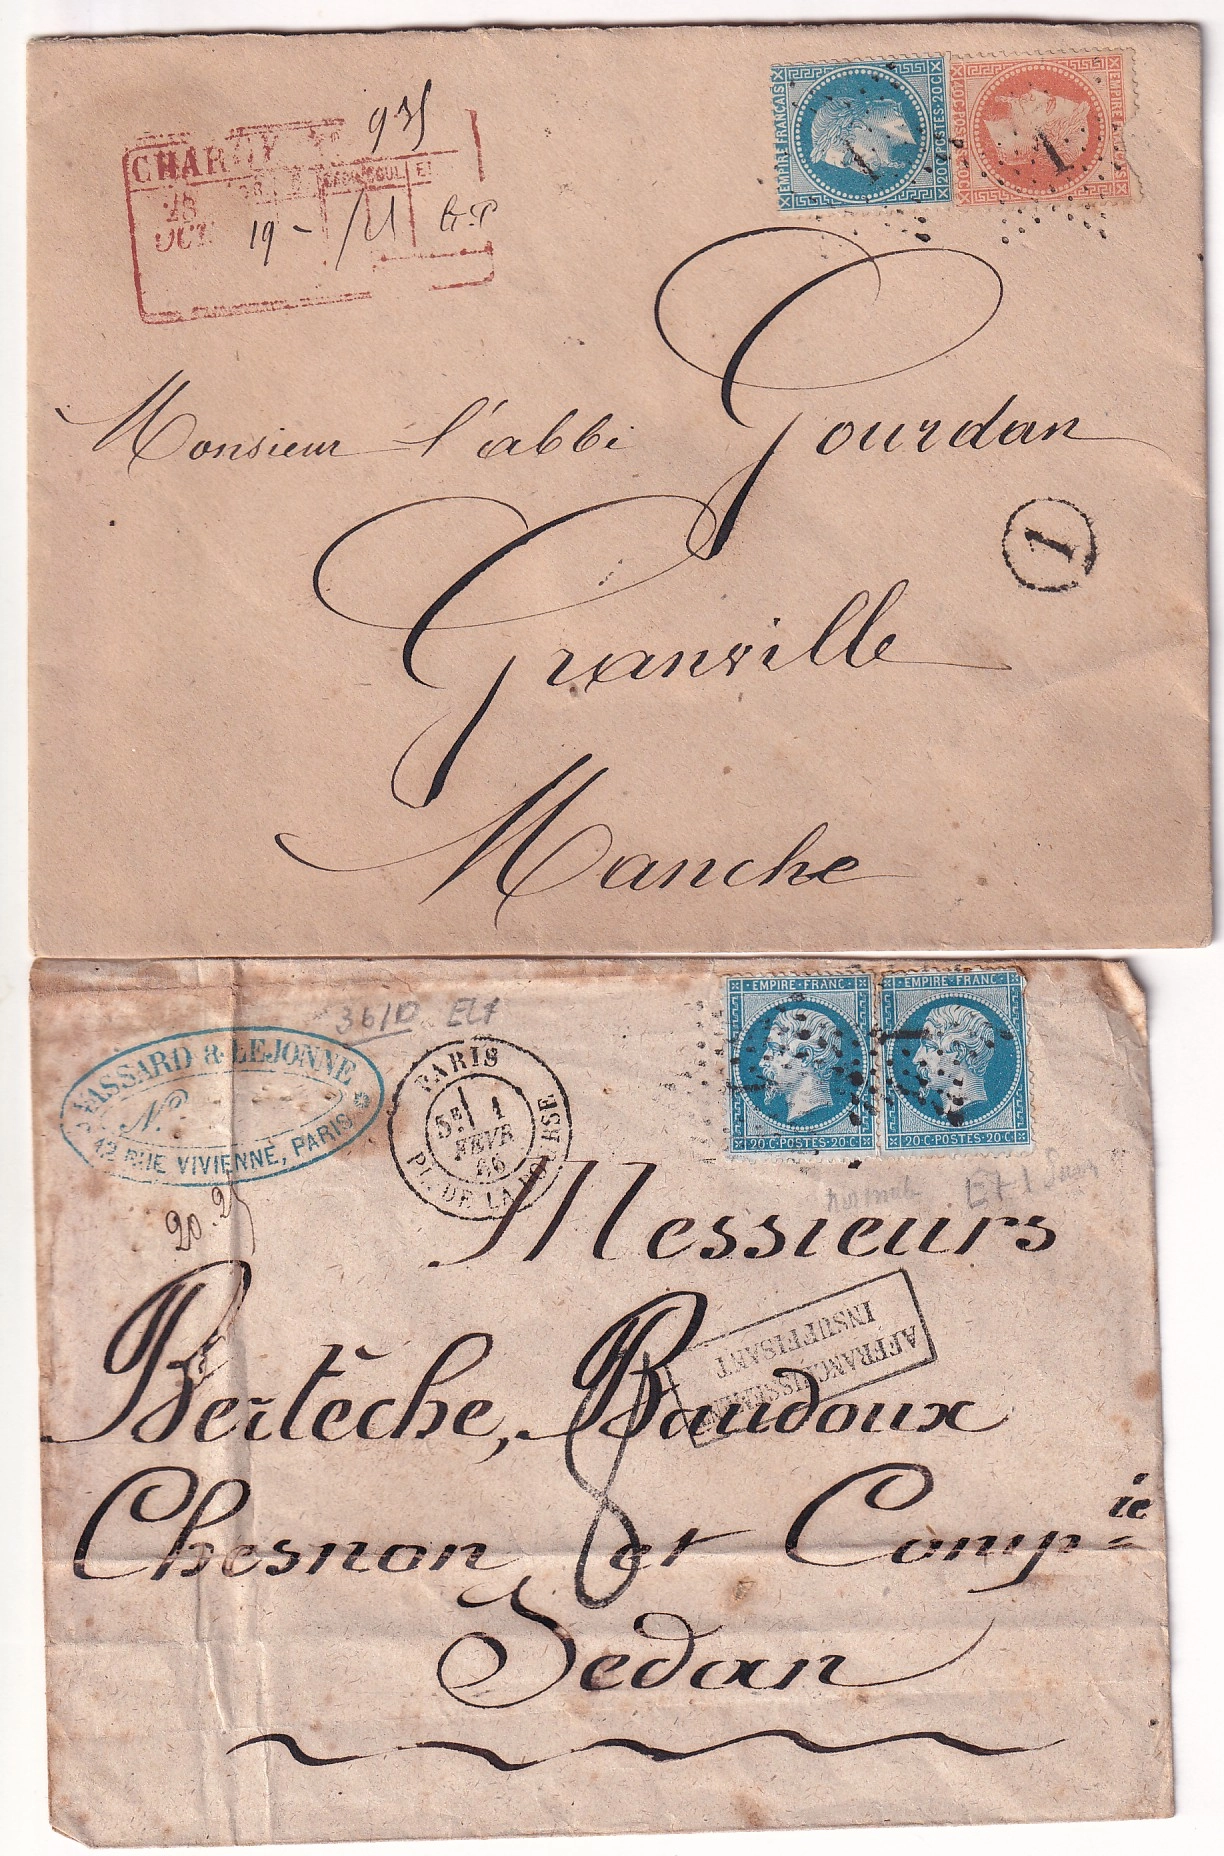 935
28
OCT
19 -
EMPIRE FRANÇAIS
20C POSTES 20C
1
EMPIRE FRANÇAIS
40C POSTES 40C
1
Monsieur l'abbé Gourdan
1
Granville
Manche
36/D
VASSARD & LEJONNE
N.º
42 RUE VIVIENNE, PARIS
20.25
PARIS
5E 1
FEVR
66
PL. DE LA BOURSE
EMPIRE FRANC
20 C POSTES 20 C
EMPIRE FRANC
20 C POSTES 20 C
1
Messieurs
AFFRANCHISSEMENT
INSUFFISANT
Bertèche, Baudoux
8
Chesnon et Comp.ie
Sedan